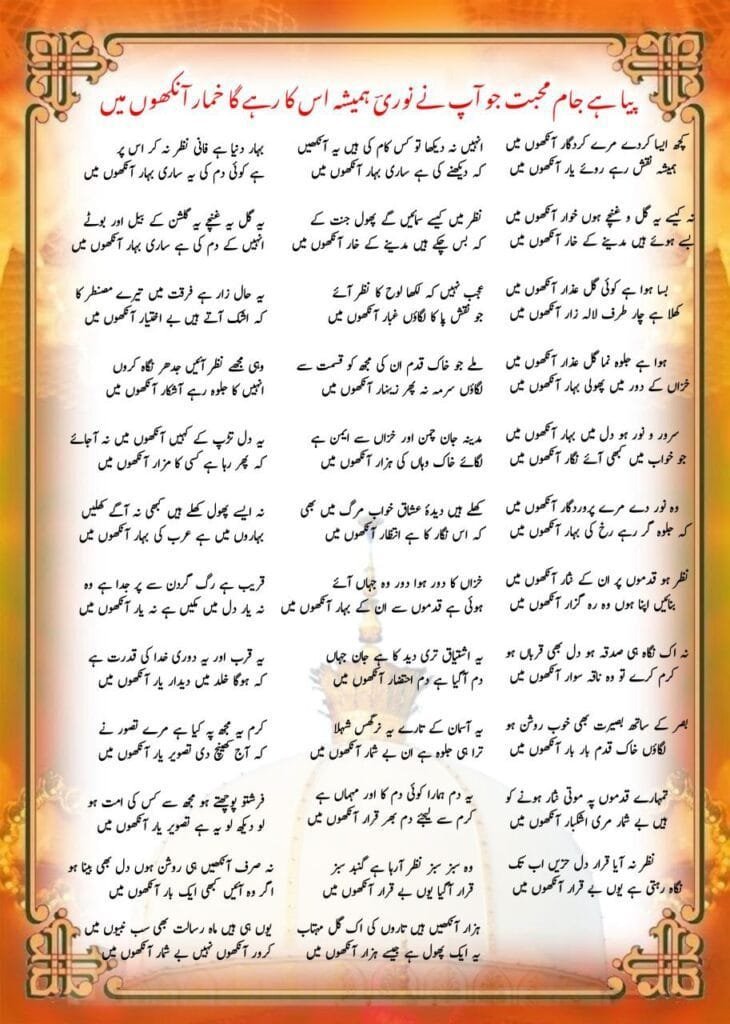 پیا ہے جام محبت جو آپ نے نوریؔ ہمیشہ اس کا رہے گا خمار آنکھوں میں
کچھ ایسا کردے مرے کردگار آنکھوں میں
ہمیشہ نقش رہے روئے یار آنکھوں میں
نہ کیسے یہ گل و غنچے ہوں خوار آنکھوں میں
بسے ہوئے ہیں مدینے کے خار آنکھوں میں
بسا ہوا ہے کوئی گل عذار آنکھوں میں
کھلا ہے چار طرف لالہ زار آنکھوں میں
ہوا ہے جلوہ نما گل عذار آنکھوں میں
خزاں کے دور میں پھولی بہار آنکھوں میں
سرور و نور ہو دل میں بہار آنکھوں میں
جو خواب میں کبھی آئے نگار آنکھوں میں
وہ نور دے مرے پروردگار آنکھوں میں
کہ جلوہ گر رہے رخ کی بہار آنکھوں میں
نظر ہو قدموں پر ان کے نثار آنکھوں میں
بنائیں اپنا ہوں وہ رہ گزار آنکھوں میں
نہ اک نگاہ ہی صدقہ ہو دل بھی قرباں ہو
کرم کرے تو وہ ناقہ سوار آنکھوں میں
بصر کے ساتھ بصیرت بھی خوب روشن ہو
لگاؤں خاک قدم بار بار آنکھوں میں
تمہارے قدموں پہ موتی نثار ہونے کو
ہیں بے شمار مری اشکبار آنکھوں میں
نظر نہ آیا قرار دل حزیں اب تک
نگاہ رہتی ہے یوں بے قرار آنکھوں میں
انہیں نہ دیکھا تو کس کام کی ہیں یہ آنکھیں
کہ دیکھنے کی ہے ساری بہار آنکھوں میں
نظر میں کیسے سمائیں گے پھول جنت کے
کہ بس چکے ہیں مدینے کے خار آنکھوں میں
عجب نہیں کہ لکھا لوح کا نظر آئے
جو نقش پا کا لگاؤں غبار آنکھوں میں
ملے جو خاک قدم ان کی مجھ کو قسمت سے
لگاؤں سرمہ نہ پھر زینہار آنکھوں میں
مدینہ جان چمن اور خزاں سے ایمن ہے
لگائے خاک وہاں کی ہزار آنکھوں میں
کھلے ہیں دیدۂ عشاق خواب مرگ میں بھی
کہ اس نگار کا ہے انتظار آنکھوں میں
خزاں کا دور ہوا دور وہ جہاں آئے
ہوئی ہے قدموں سے ان کے بہار آنکھوں میں
یہ اشتیاق تری دید کا ہے جان جہاں
دم آگیا ہے دم احتضار آنکھوں میں
یہ آسمان کے تارے یہ نرگس شہلا
ترا ہی جلوہ ہے ان بے شمار آنکھوں میں
یہ دم ہمارا کوئی دم کا اور مہماں ہے
کرم سے لیجئے دم بھر قرار آنکھوں میں
وہ سبز سبز نظر آرہا ہے گنبد سبز
قرار آگیا یوں بے قرار آنکھوں میں
ہزار آنکھیں ہیں تاروں کی اک گل مہتاب
یہ ایک پھول ہے جیسے ہزار آنکھوں میں
بہار دنیا ہے فانی نظر نہ کر اس پر
ہے کوئی دم کی یہ ساری بہار آنکھوں میں
یہ گل یہ غنچے یہ گلشن کے بیل اور بوٹے
انہیں کے دم کی ہے ساری بہار آنکھوں میں
یہ حال زار ہے فرقت میں تیرے مضطر کا
کہ اشک آتے ہیں بے اختیار آنکھوں میں
وہی مجھے نظر آئیں جدھر نگاہ کروں
انہیں کا جلوہ رہے آشکار آنکھوں میں
یہ دل تڑپ کے کہیں آنکھوں میں نہ آجائے
کہ پھر رہا ہے کسی کا مزار آنکھوں میں
نہ ایسے پھول کھلے ہیں کبھی نہ آگے کھلیں
بہاروں میں ہے عرب کی بہار آنکھوں میں
قریب ہے رگ گردن سے پر جدا ہے وہ
نہ یار دل میں مکیں ہے نہ یار آنکھوں میں
یہ قرب اور یہ دوری خدا کی قدرت ہے
کہ ہوگا خلد میں دیدار یار آنکھوں میں
کرم یہ مجھ پہ کیا ہے مرے تصور نے
کہ آج کھینچ دی تصویر یار آنکھوں میں
فرشتو پوچھتے ہو مجھ سے کس کی امت ہو
لو دیکھ لو یہ ہے تصویر یار آنکھوں میں
نہ صرف آنکھیں ہی روشن ہوں دل بھی بینا ہو
اگر وہ آئیں کبھی ایک بار آنکھوں میں
یوں ہی ہیں ماہ رسالت بھی سب نبیوں میں
کرور آنکھوں نہیں بے شمار آنکھوں میں